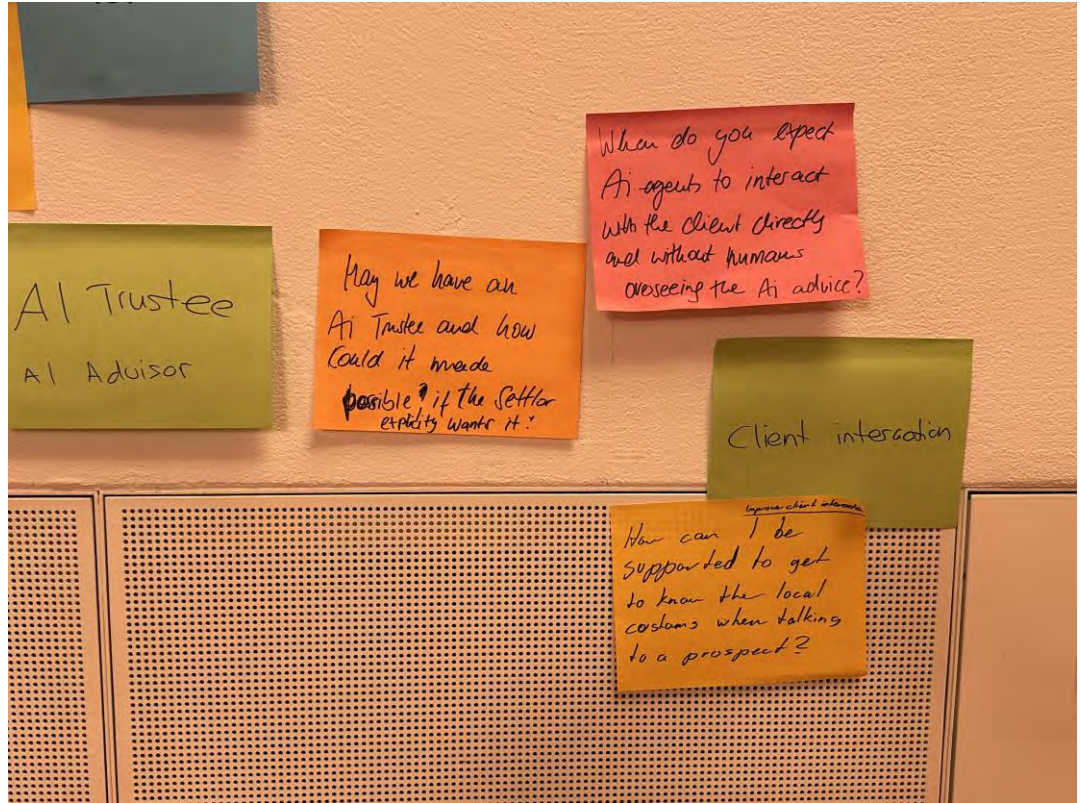 AI Trustee
AI Advisor
May we have an
Ai Trustee and how
Could it made
possible? if the Settlor
explicity wants it?
When do you expect
Ai agents to interact
with the client directly
and without humans
overseeing the Ai advice?
Client interaction
Improve client interaction
How can I be
supported to get
to know the local
customs when talking
to a prospect?